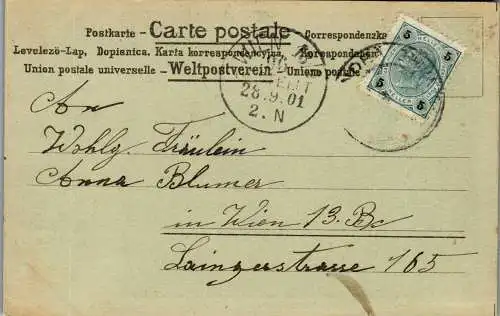 Postkarte - Carte postale - Correspondenzka
Levelező-Lap, Dopisnica. Karta korrespondencyjna, Korespondenčni
Union postale universelle - Weltpostverein - Unione postale
WIEN
28.9.01
2.N
5 5
5 5
An
Wohlg. Fräulein
Anna Blumer
in Wien 13. Bz
Lainzerstrasse 165